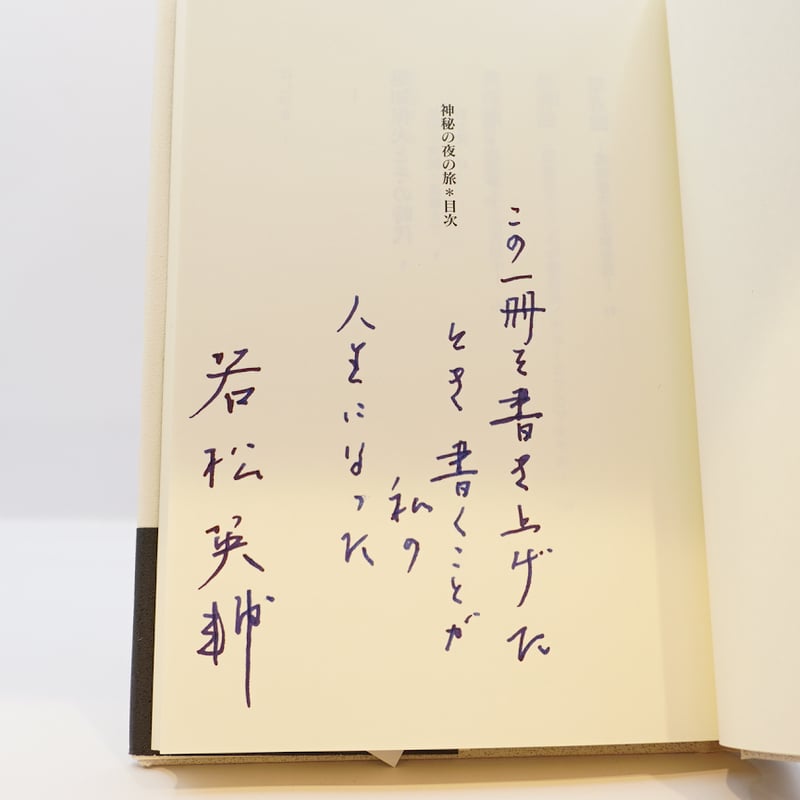 この一冊を書き上げた
とき書くことが
私の
人生になった
若松英輔
神秘の夜の旅＊目次